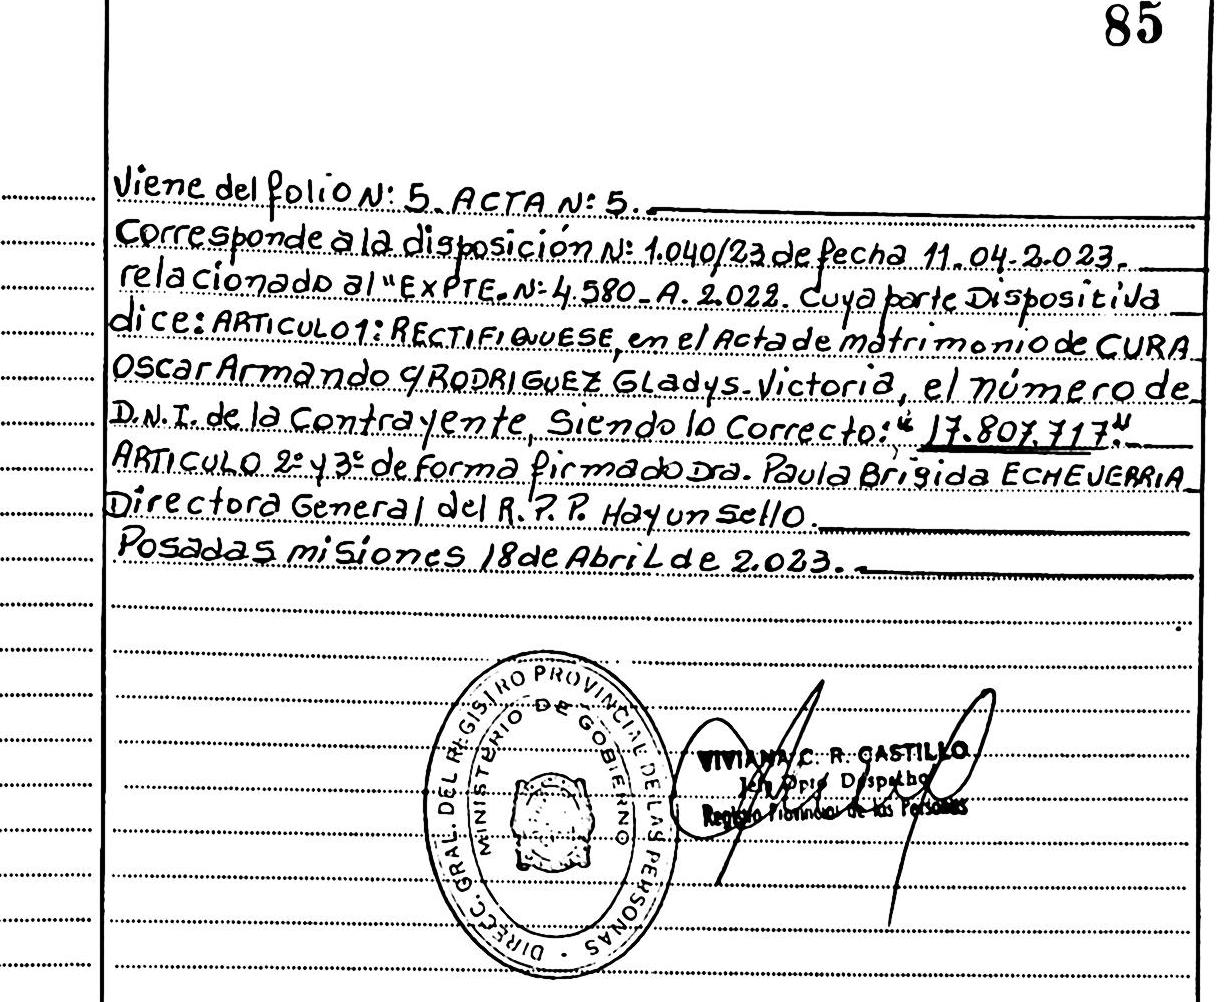 85
Viene del folio Nº: 5. ACTA Nº: 5.
Corresponde a la disposición Nº: 1.040/23 de fecha 11.04.2.023.
relacionado al "EXPTE. Nº 4.580_A. 2.022. Cuya parte Dispositiva
dice: ARTICULO 1: RECTIFIQUESE, en el Acta de matrimonio de CURA
Oscar Armando c/ RODRIGUEZ Gladys Victoria, el número de
D.N.I. de la Contrayente, Siendo lo Correcto: "17.807.717".
ARTICULO 2º y 3º de forma firmado Dra. Paula Brigida ECHEVERRIA
Directora General del R.P.P. Hay un Sello.
Posadas misiones 18 de Abril de 2.023.
DIRECC. GRAL. DEL REGISTRO PROVINCIAL DE LAS PERSONAS
MINISTERIO DE GOBIERNO
VIVIANA C. R. CASTILLO
Jefe Dpto Despacho
Registro Provincial de las Personas